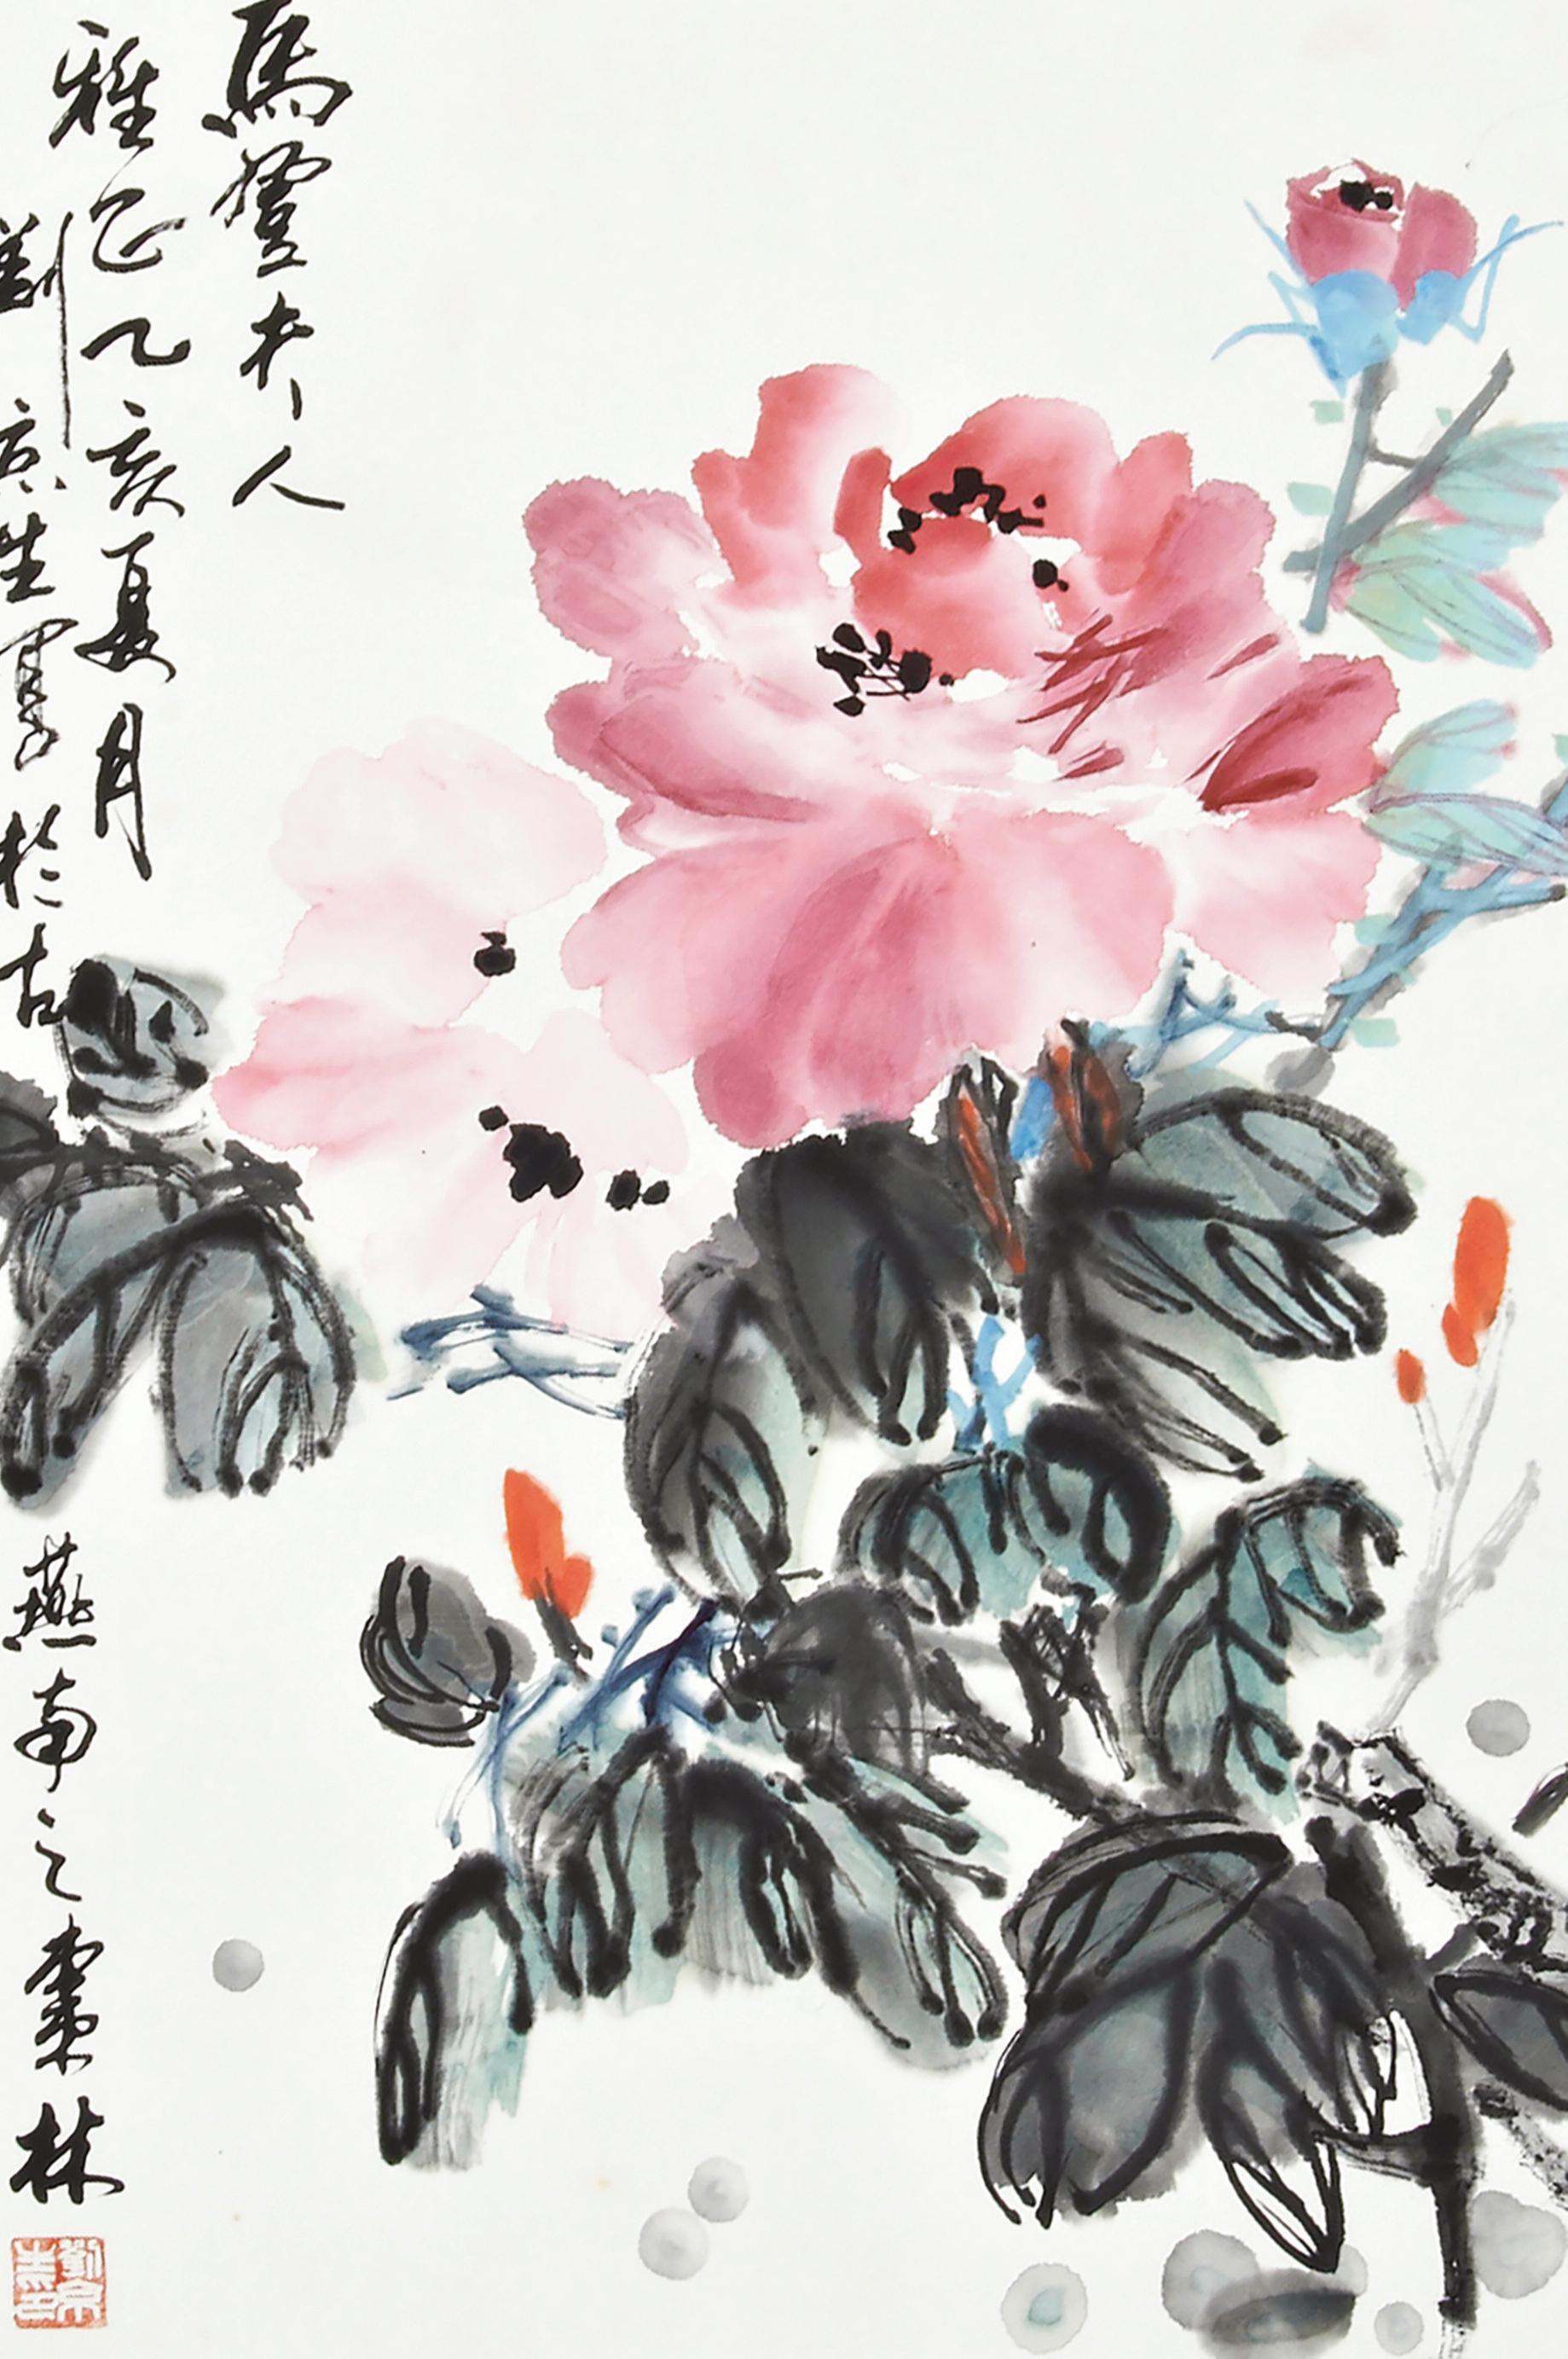 馬登夫人
雅正乙亥夏月
劉京生寫於古燕南之棗林
劉京生印